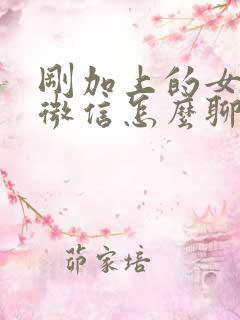 剛加上的女
微信怎麼聊
茆家培